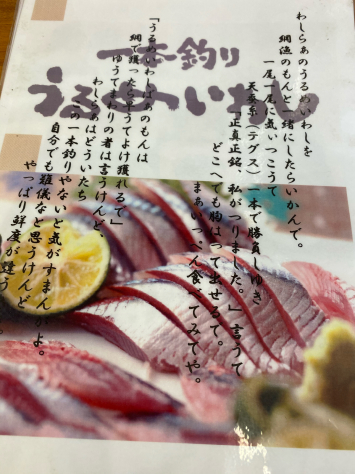 一本釣り
うるめいわし
わしらぁのうるめいわしを
網漁のもんと一緒にしたらいかんで。
一尾一尾に気ぃつこうて
天蚕糸(テグス)一本で勝負しゆき
「正真正銘、私がつりました。」言うて
どこへでも胸はって出せるで。
まぁいっぺん食べてみてや。
「うるめいわしばぁのもんは
網で獲ったら早うてよけ獲れるで」
ゆうてまわりの者は言うけんど、
わしらぁはどういたち
一本釣りやないと気がすまんがよ。
自分でも難儀なと思うけんど
やっぱり鮮度が違う